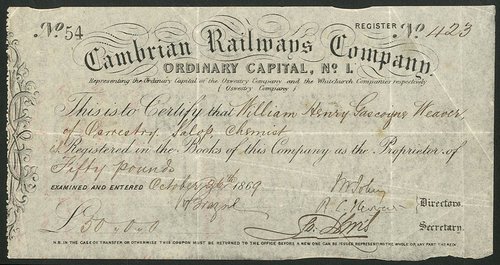 No 54
REGISTER No 423
Cambrian Railways Company.
ORDINARY CAPITAL, No 1.
Representing the Ordinary Capital of the Oswestry Company and the Whitchurch Companies respectively
(Oswestry Company)
This is to Certify that William Henry Gascoyne Weaver
of Oswestry, Salop, Chemist
is Registered in the Books of this Company as the Proprietor of
Fifty Pounds
EXAMINED AND ENTERED October 26th 1869
Directors.
£50.0.0
Secretary.
N.B. IN THE CASE OF TRANSFER OR OTHERWISE THIS COUPON MUST BE RETURNED TO THE OFFICE BEFORE A NEW ONE CAN BE ISSUED REPRESENTING THE WHOLE OR ANY PART THEREOF